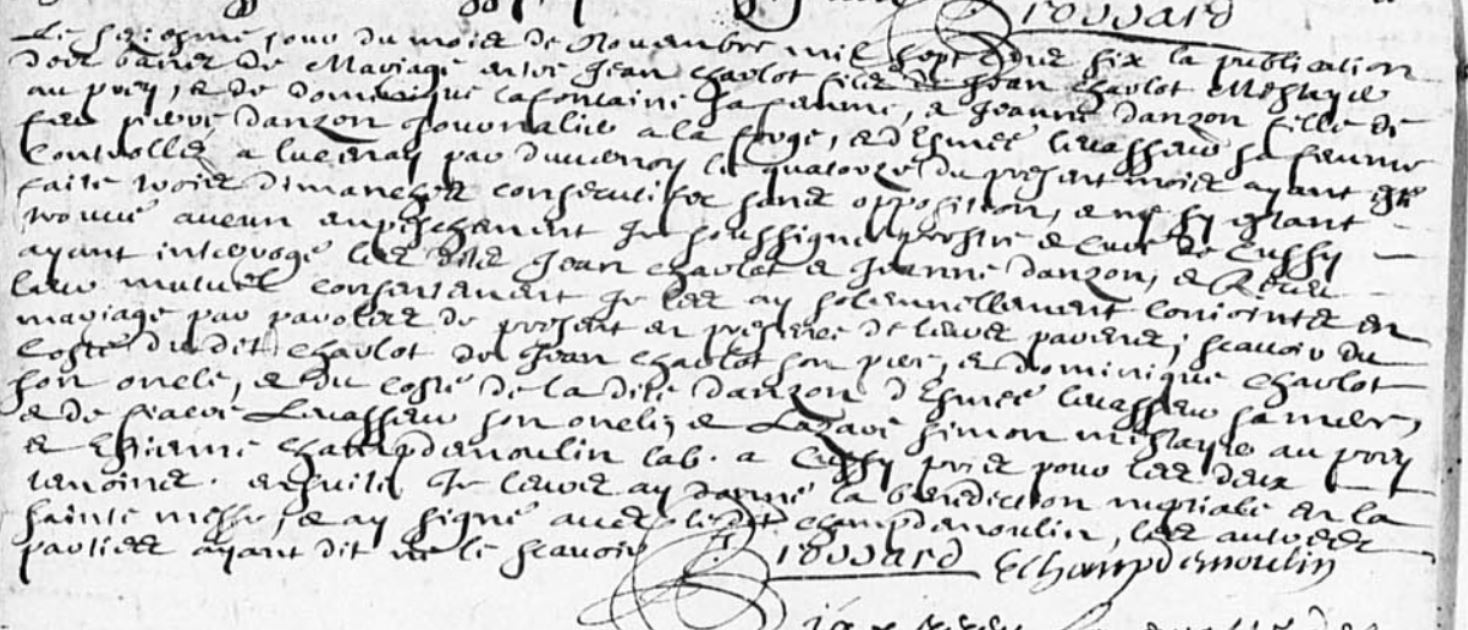 Trouvard
Le seiziesme jour du mois de Novembre mil sept cens six la publication
des bancs de Mariage entre Jean charlot fils de Jean charlot Mestayer
au pery, & de dominique lafontaine sa femme, & Jeanne danzon fille de
feu pierre danzon Journalier a la forge, & d'Esmée levasseur sa femme
Controllé a lucenay par duvernoy le quatorze du present mois ayant esté
faite trois dimanches consecutifs sans opposition, & ne sy estant
trouvé aucun empeschement Je soussigné prestre & Curé de Cussy
ayant interrogé les dits Jean charlot & Jeanne danzon, & Receu
leur mutuel consentement Je les ay solennellement conjoints en
mariage par paroles de present en presence de leurs parens, scavoir du
costé du dit charlot de Jean charlot son pere, & dominique charlot
son oncle, & du costé de la dite danzon d'Esmée levasseur sa mere,
& de levasseur son oncle, & Lazare simon mestayer au pery
& Estienne champdemoulin lab. a Cussy priés pour les deux
temoins. ensuite Je leurs ay donné la benediction nuptiale en la
sainte messe, & ay signé avec ledit champdemoulin, les autres
parties ayant dit ne le scavoir Trouvard EChampdemoulin